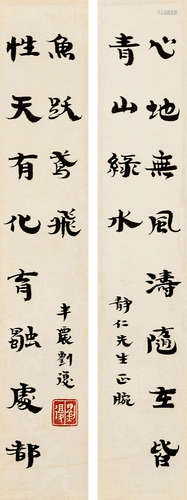 心地無風濤隨在皆
青山綠水
靜仁先生正腕
性天有化育觸處都
魚跃鳶飛
半農劉復